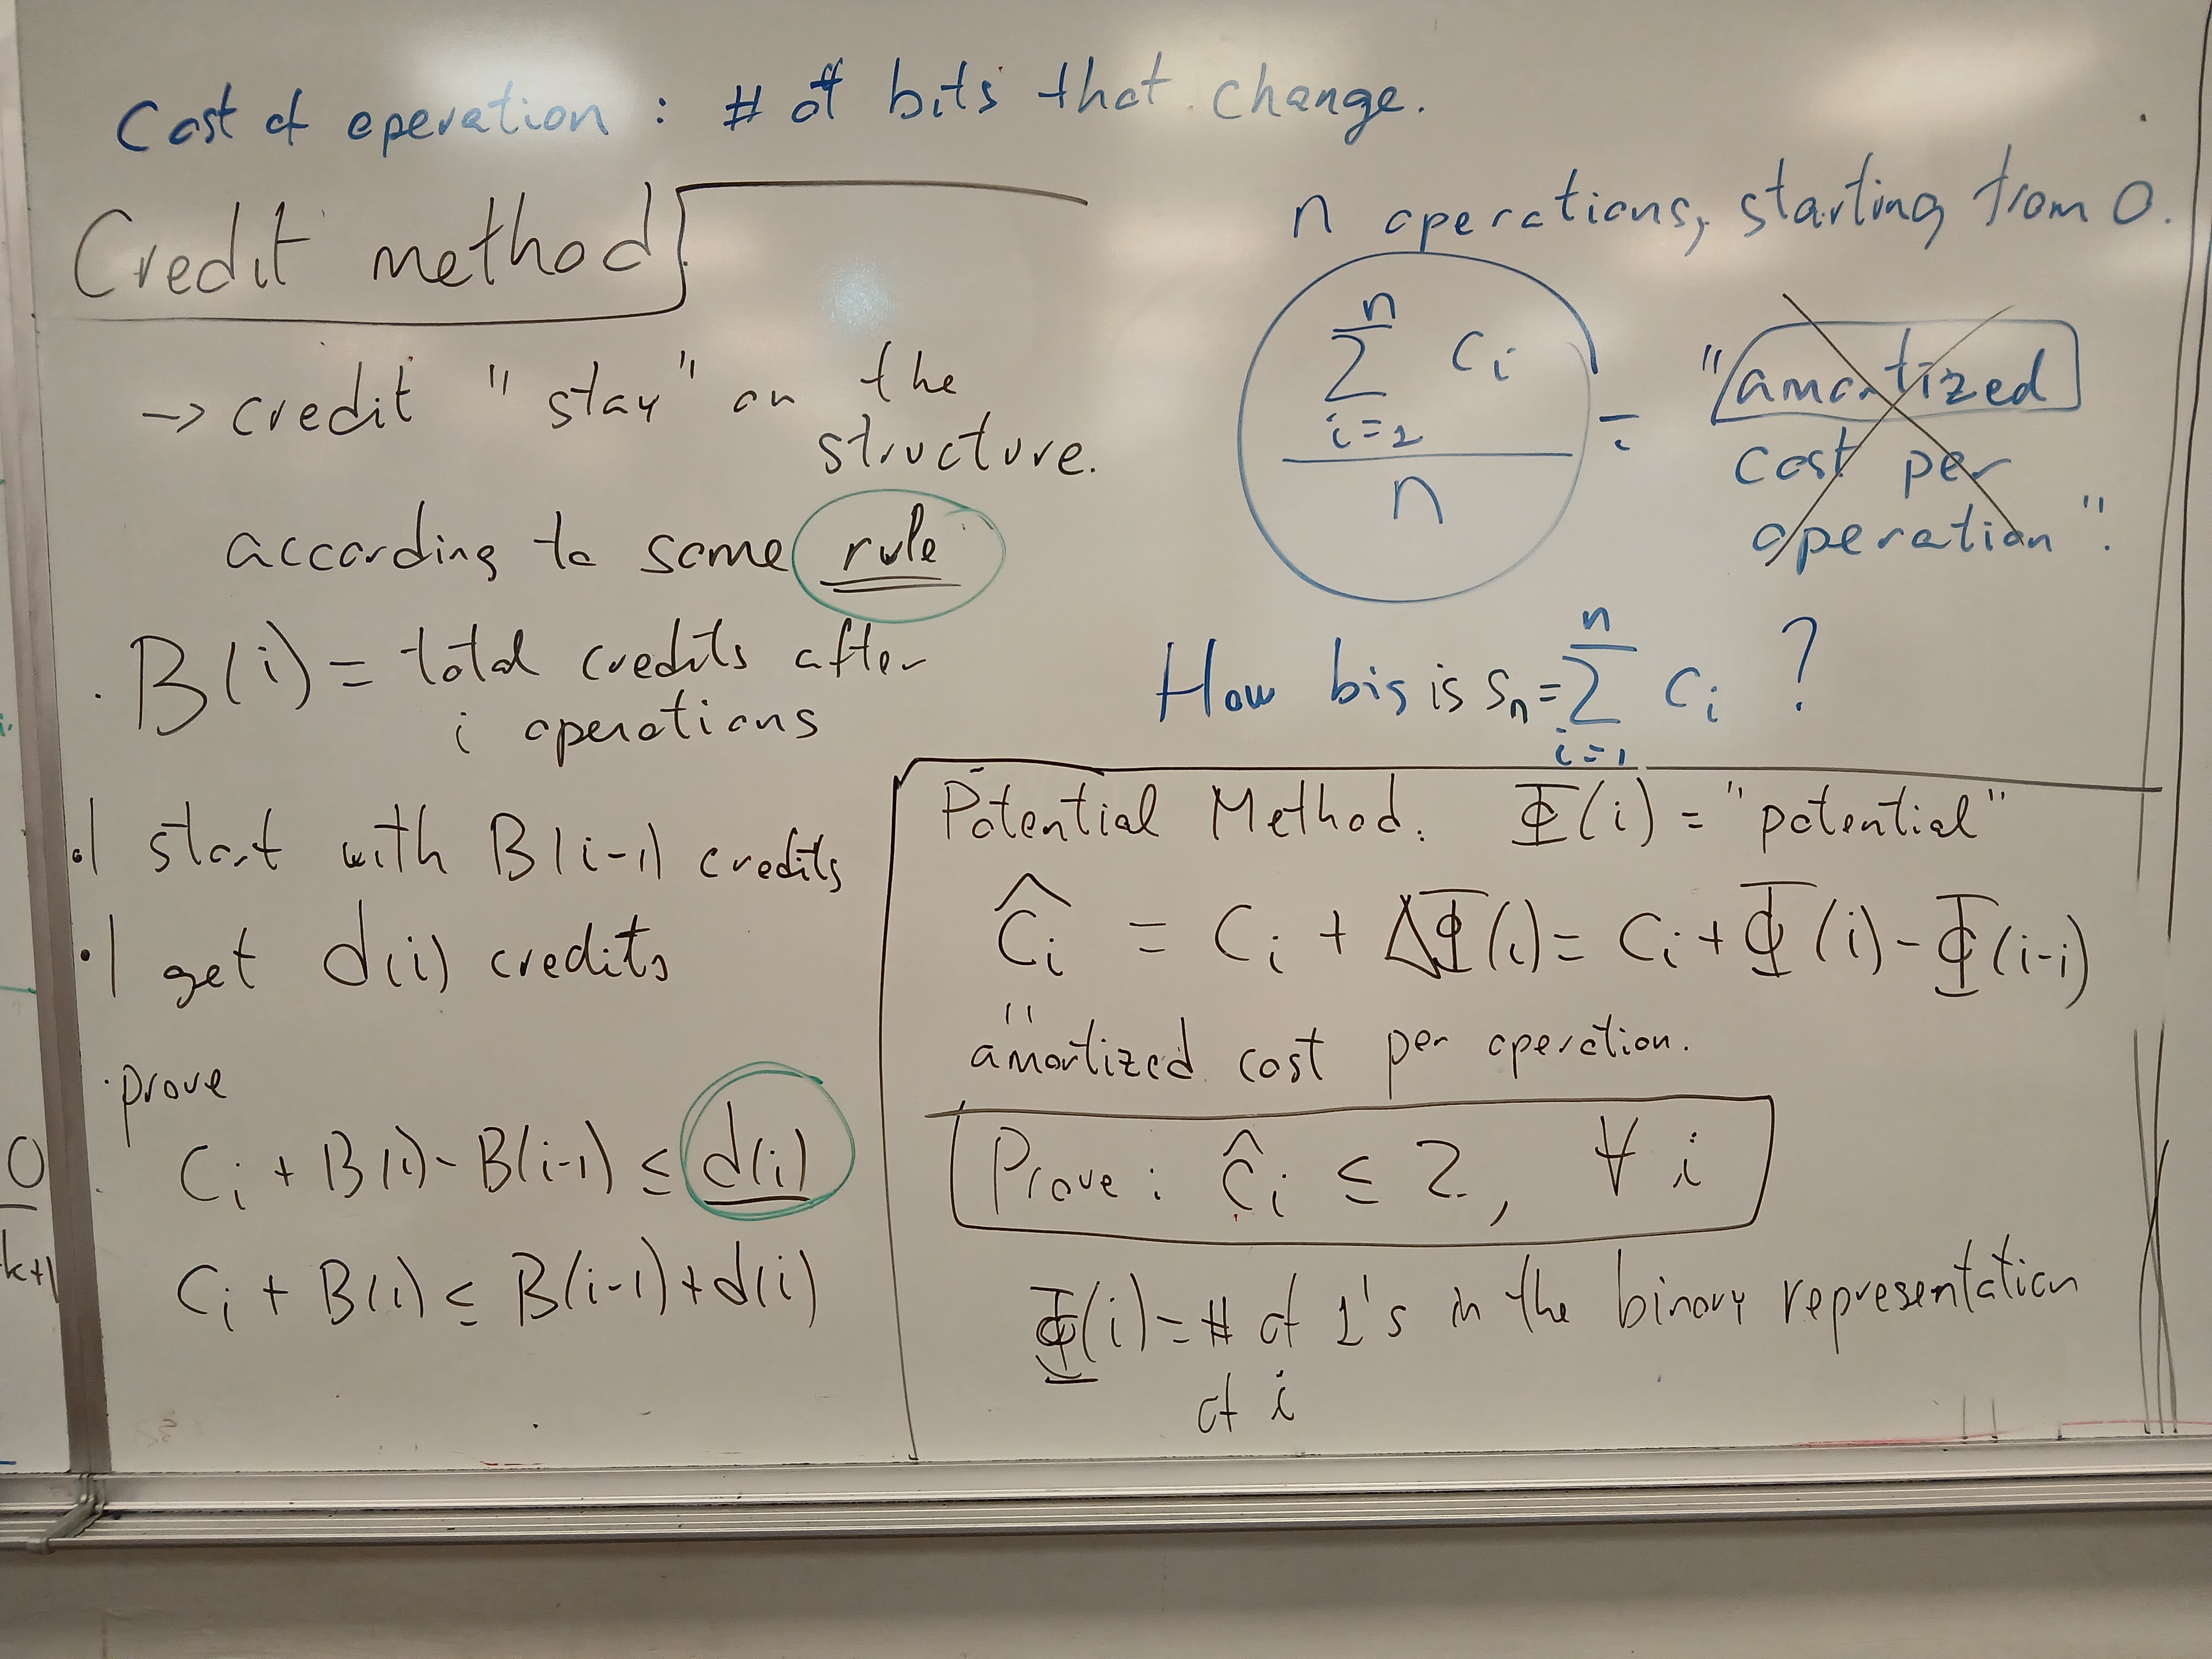 Cost of operation : # of bits that change.
Credit method
→ credit "stay" on the
structure.
according to some rule
. B(i) = total credits after
i operations
• I start with B(i-1) credits
• I get d(i) credits
· prove
Ci + B(i) - B(i-1) ≤ d(i)
Ci + B(i) ≤ B(i-1) + d(i)
n operations, starting from 0.
n
∑ ci
i=1
n
= "amortized
cost per
operation".
n
How big is Sn = ∑ ci ?
i=1
Potential Method. Φ(i) = "potential"
Ĉi = Ci + ΔΦ(i) = Ci + Φ(i) - Φ(i-1)
"
amortized cost per operation.
Prove : ĉi ≤ 2, ∀ i
Φ(i) = # of 1's in the binary representation
of i
0
k+1